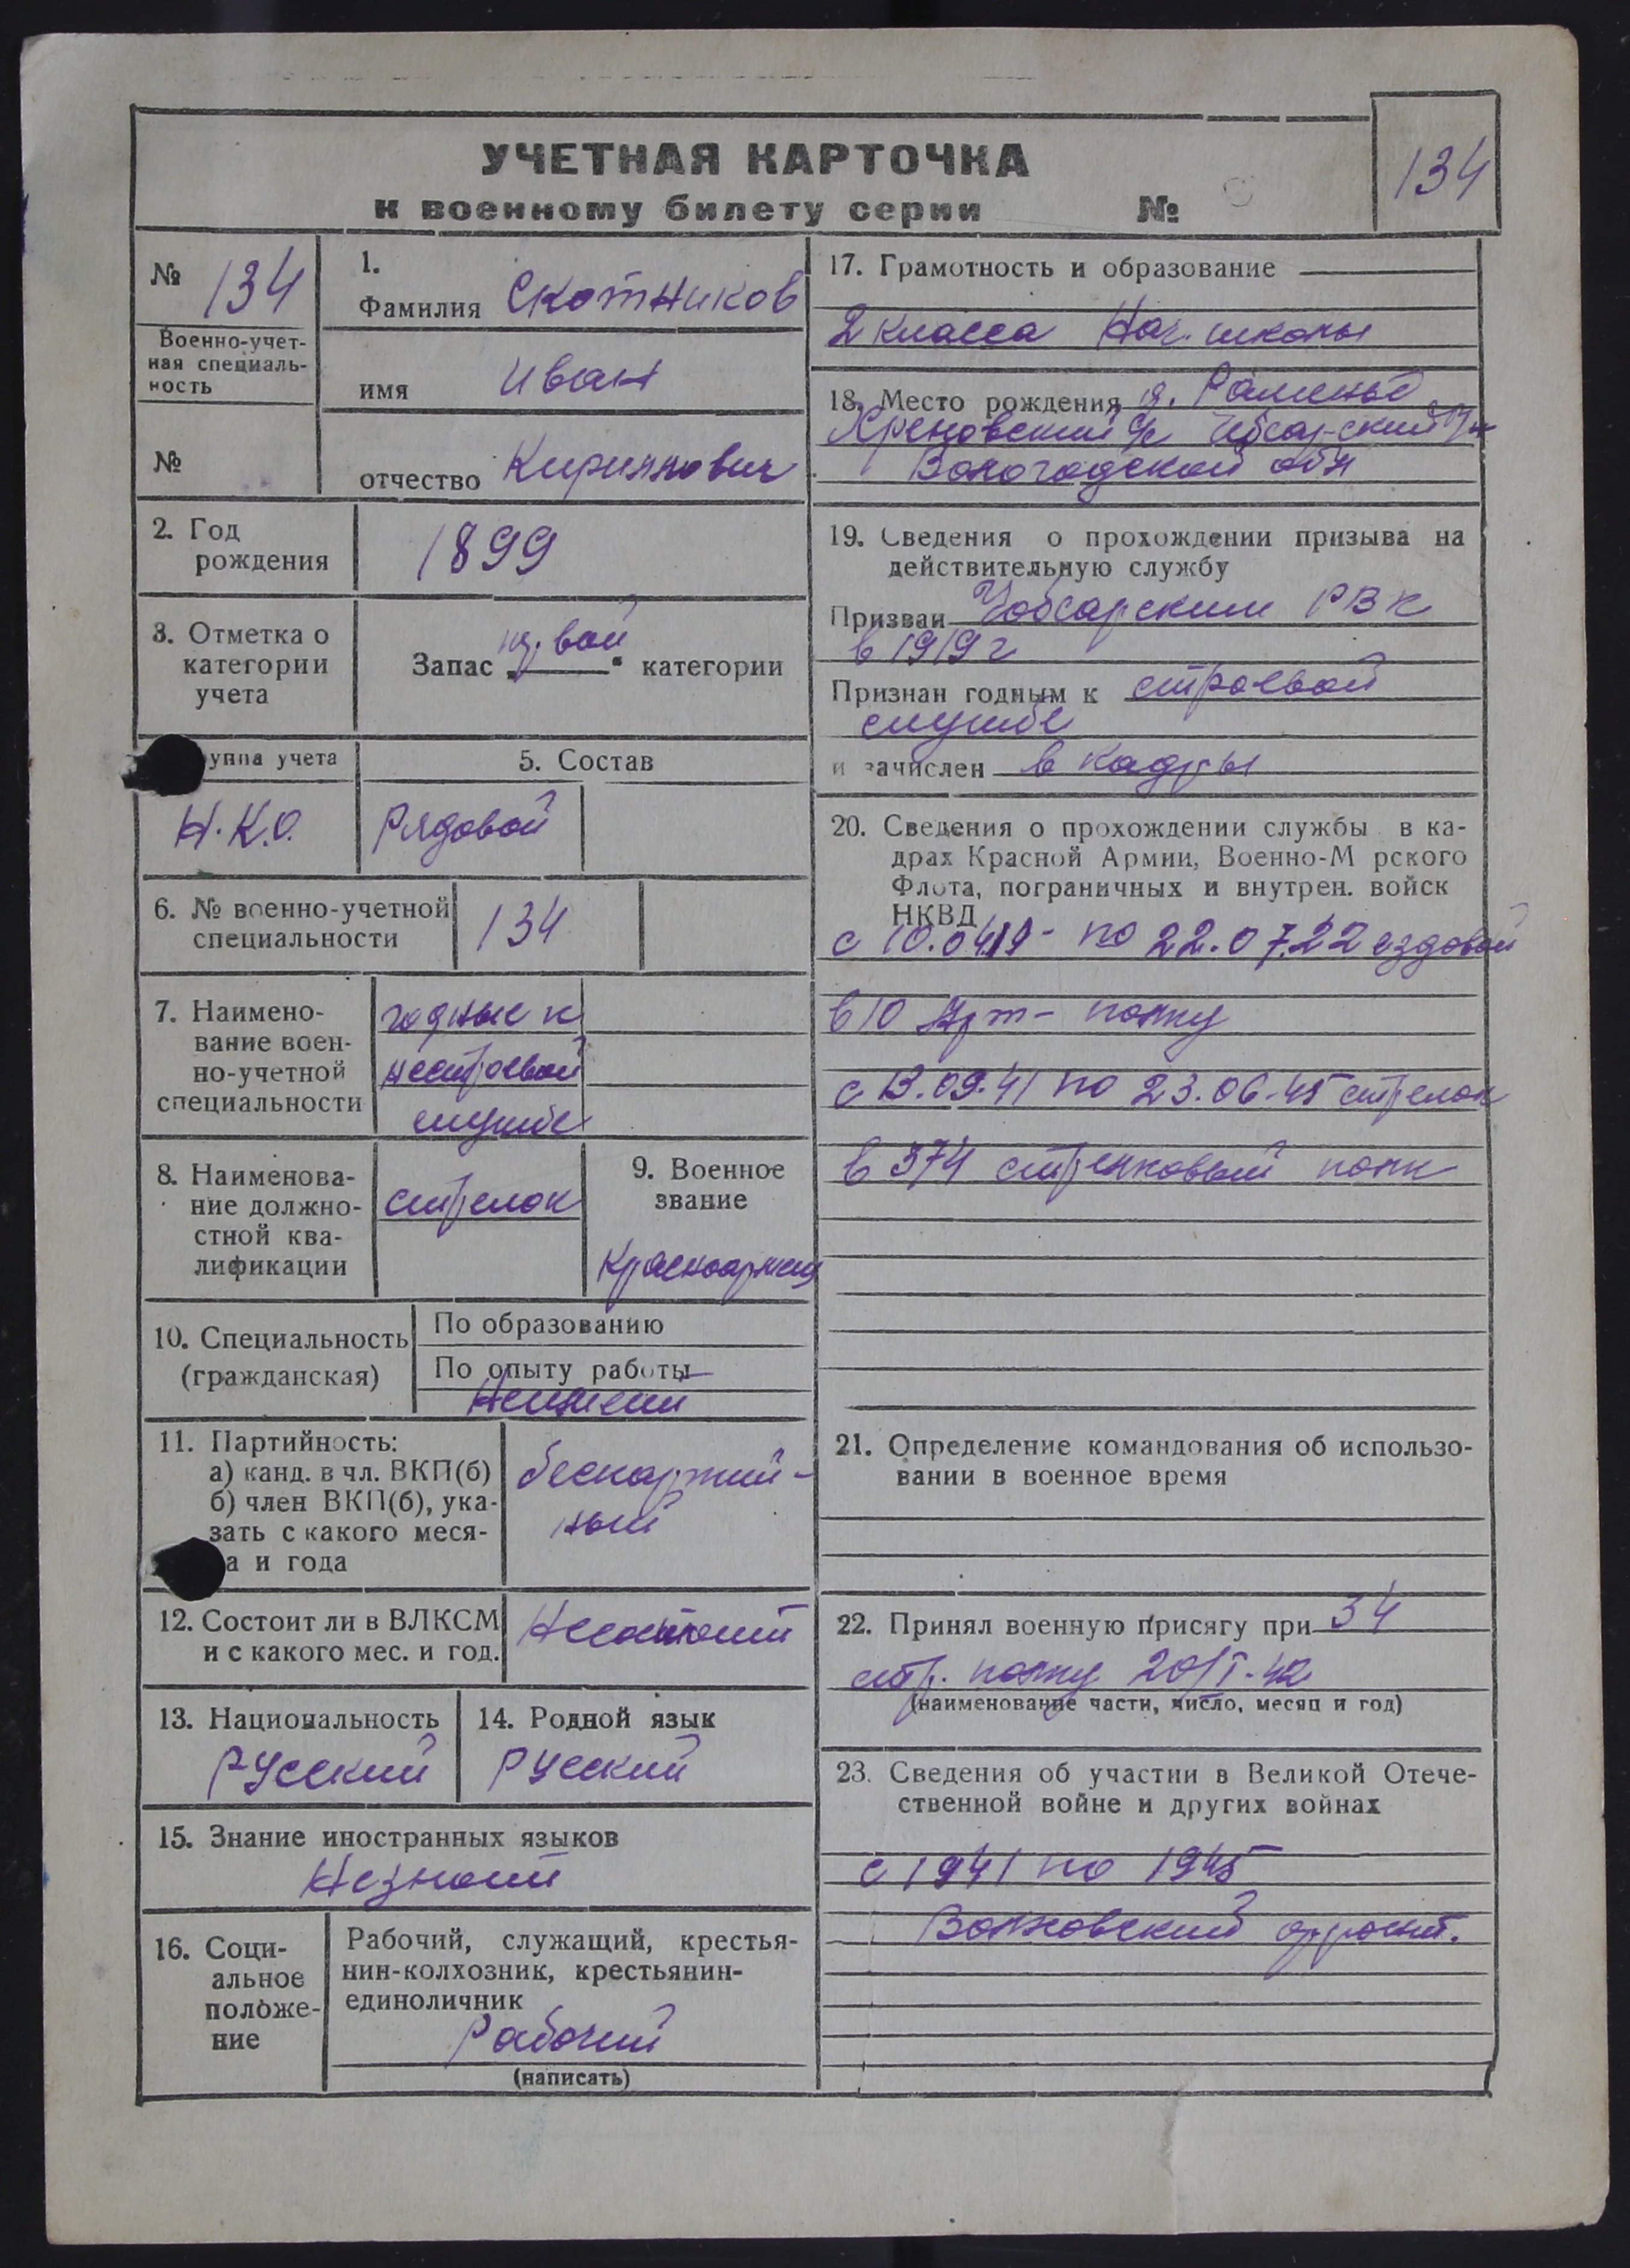 УЧЕТНАЯ КАРТОЧКА
к военному билету серии №
134
№ 134
Военно-учет-
ная специаль-
ность
№
1.
Фамилия Скотников
имя Иван
отчество Кириянович
2. Год
рождения
1899
3. Отметка о
категории
учета
Запас первой категории
уппа учета
Н.К.О.
5. Состав
Рядовой
6. № военно-учетной
специальности
134
7. Наимено-
вание воен-
но-учетной
специальности
годные к
нестроевой
службе
8. Наименова-
ние должно-
стной ква-
лификации
стрелок
9. Военное
звание
Красноармеец
10. Специальность
(гражданская)
По образованию
По опыту работы
11. Партийность:
а) канд. в чл. ВКП(б)
б) член ВКП(б), ука-
зать с какого меся-
а и года
беспартий-
ный
12. Состоит ли в ВЛКСМ
и с какого мес. и год.
Несостоит
13. Национальность
Русский
14. Родной язык
Русский
15. Знание иностранных языков
Незнает
16. Соци-
альное
положе-
ние
Рабочий, служащий, крестья-
нин-колхозник, крестьянин-
единоличник
Рабочий
(написать)
17. Грамотность и образование
2 класса Нач. школы
18. Место рождения д. Раменье
Хреновский с/с Чебсарский р-н
Вологодской обл
19. Сведения о прохождении призыва на
действительную службу
Призван Чебсарским РВК
в 1919 г
Признан годным к строевой
службе
и зачислен в кадры
20. Сведения о прохождении службы в ка-
драх Красной Армии, Военно-М рского
Флота, пограничных и внутрен. войск
НКВД
с 10.04.19 - по 22.07.22 ездовой
в 10 Арт- полку
с 13.09.41 по 23.06.45 стрелок
в 374 стрелковый полк
21. Определение командования об использо-
вании в военное время
22. Принял военную присягу при 34
стр. полку 20/I-42
(наименование части, число, месяц и год)
23. Сведения об участии в Великой Отече-
ственной войне и других войнах
с 1941 по 1945
Волховский фронт.